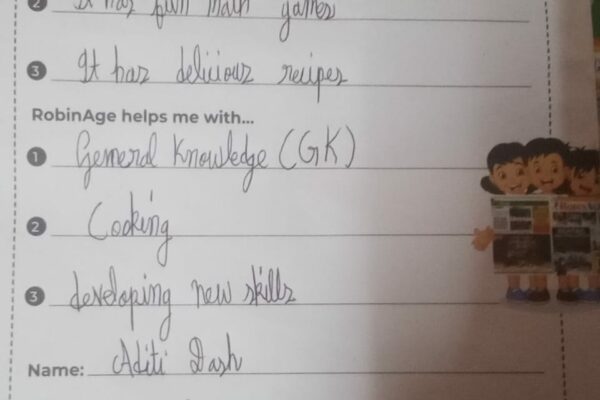 2 It has fun math games
3 It has delicious recipes
RobinAge helps me with...
1 General Knowledge (GK)
2 Cooking
3 developing new skills
Name: Aditi Dash